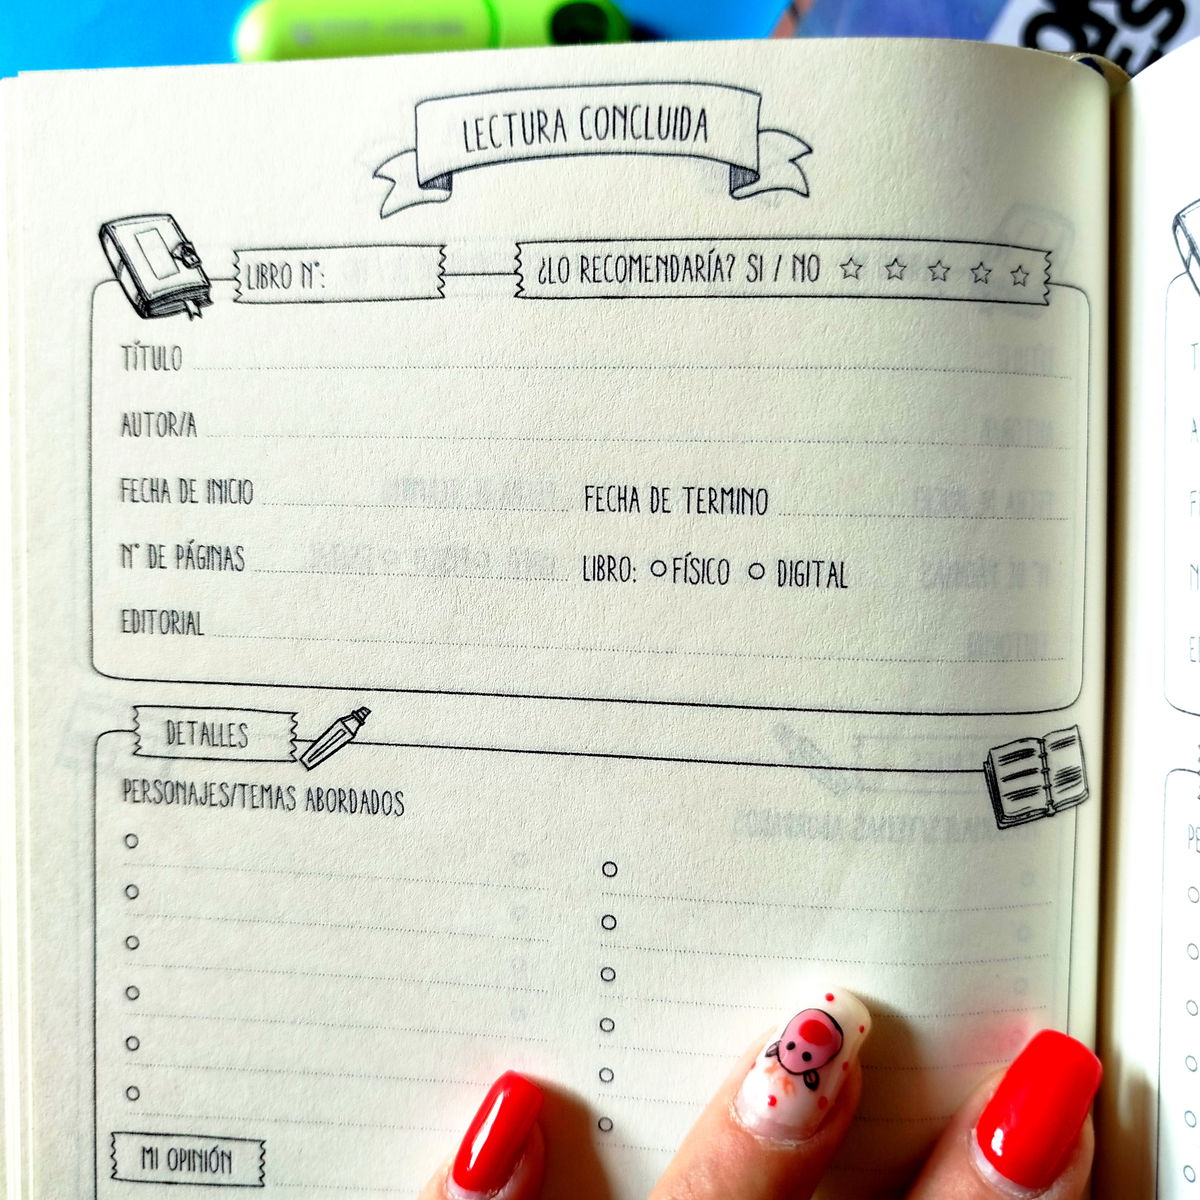 LECTURA CONCLUIDA
LIBRO N°:
¿LO RECOMENDARÍA? SI / NO
TÍTULO
AUTOR/A
FECHA DE INICIO
FECHA DE TERMINO
N° DE PÁGINAS
LIBRO: FÍSICO DIGITAL
EDITORIAL
DETALLES
PERSONAJES/TEMAS ABORDADOS
MI OPINIÓN